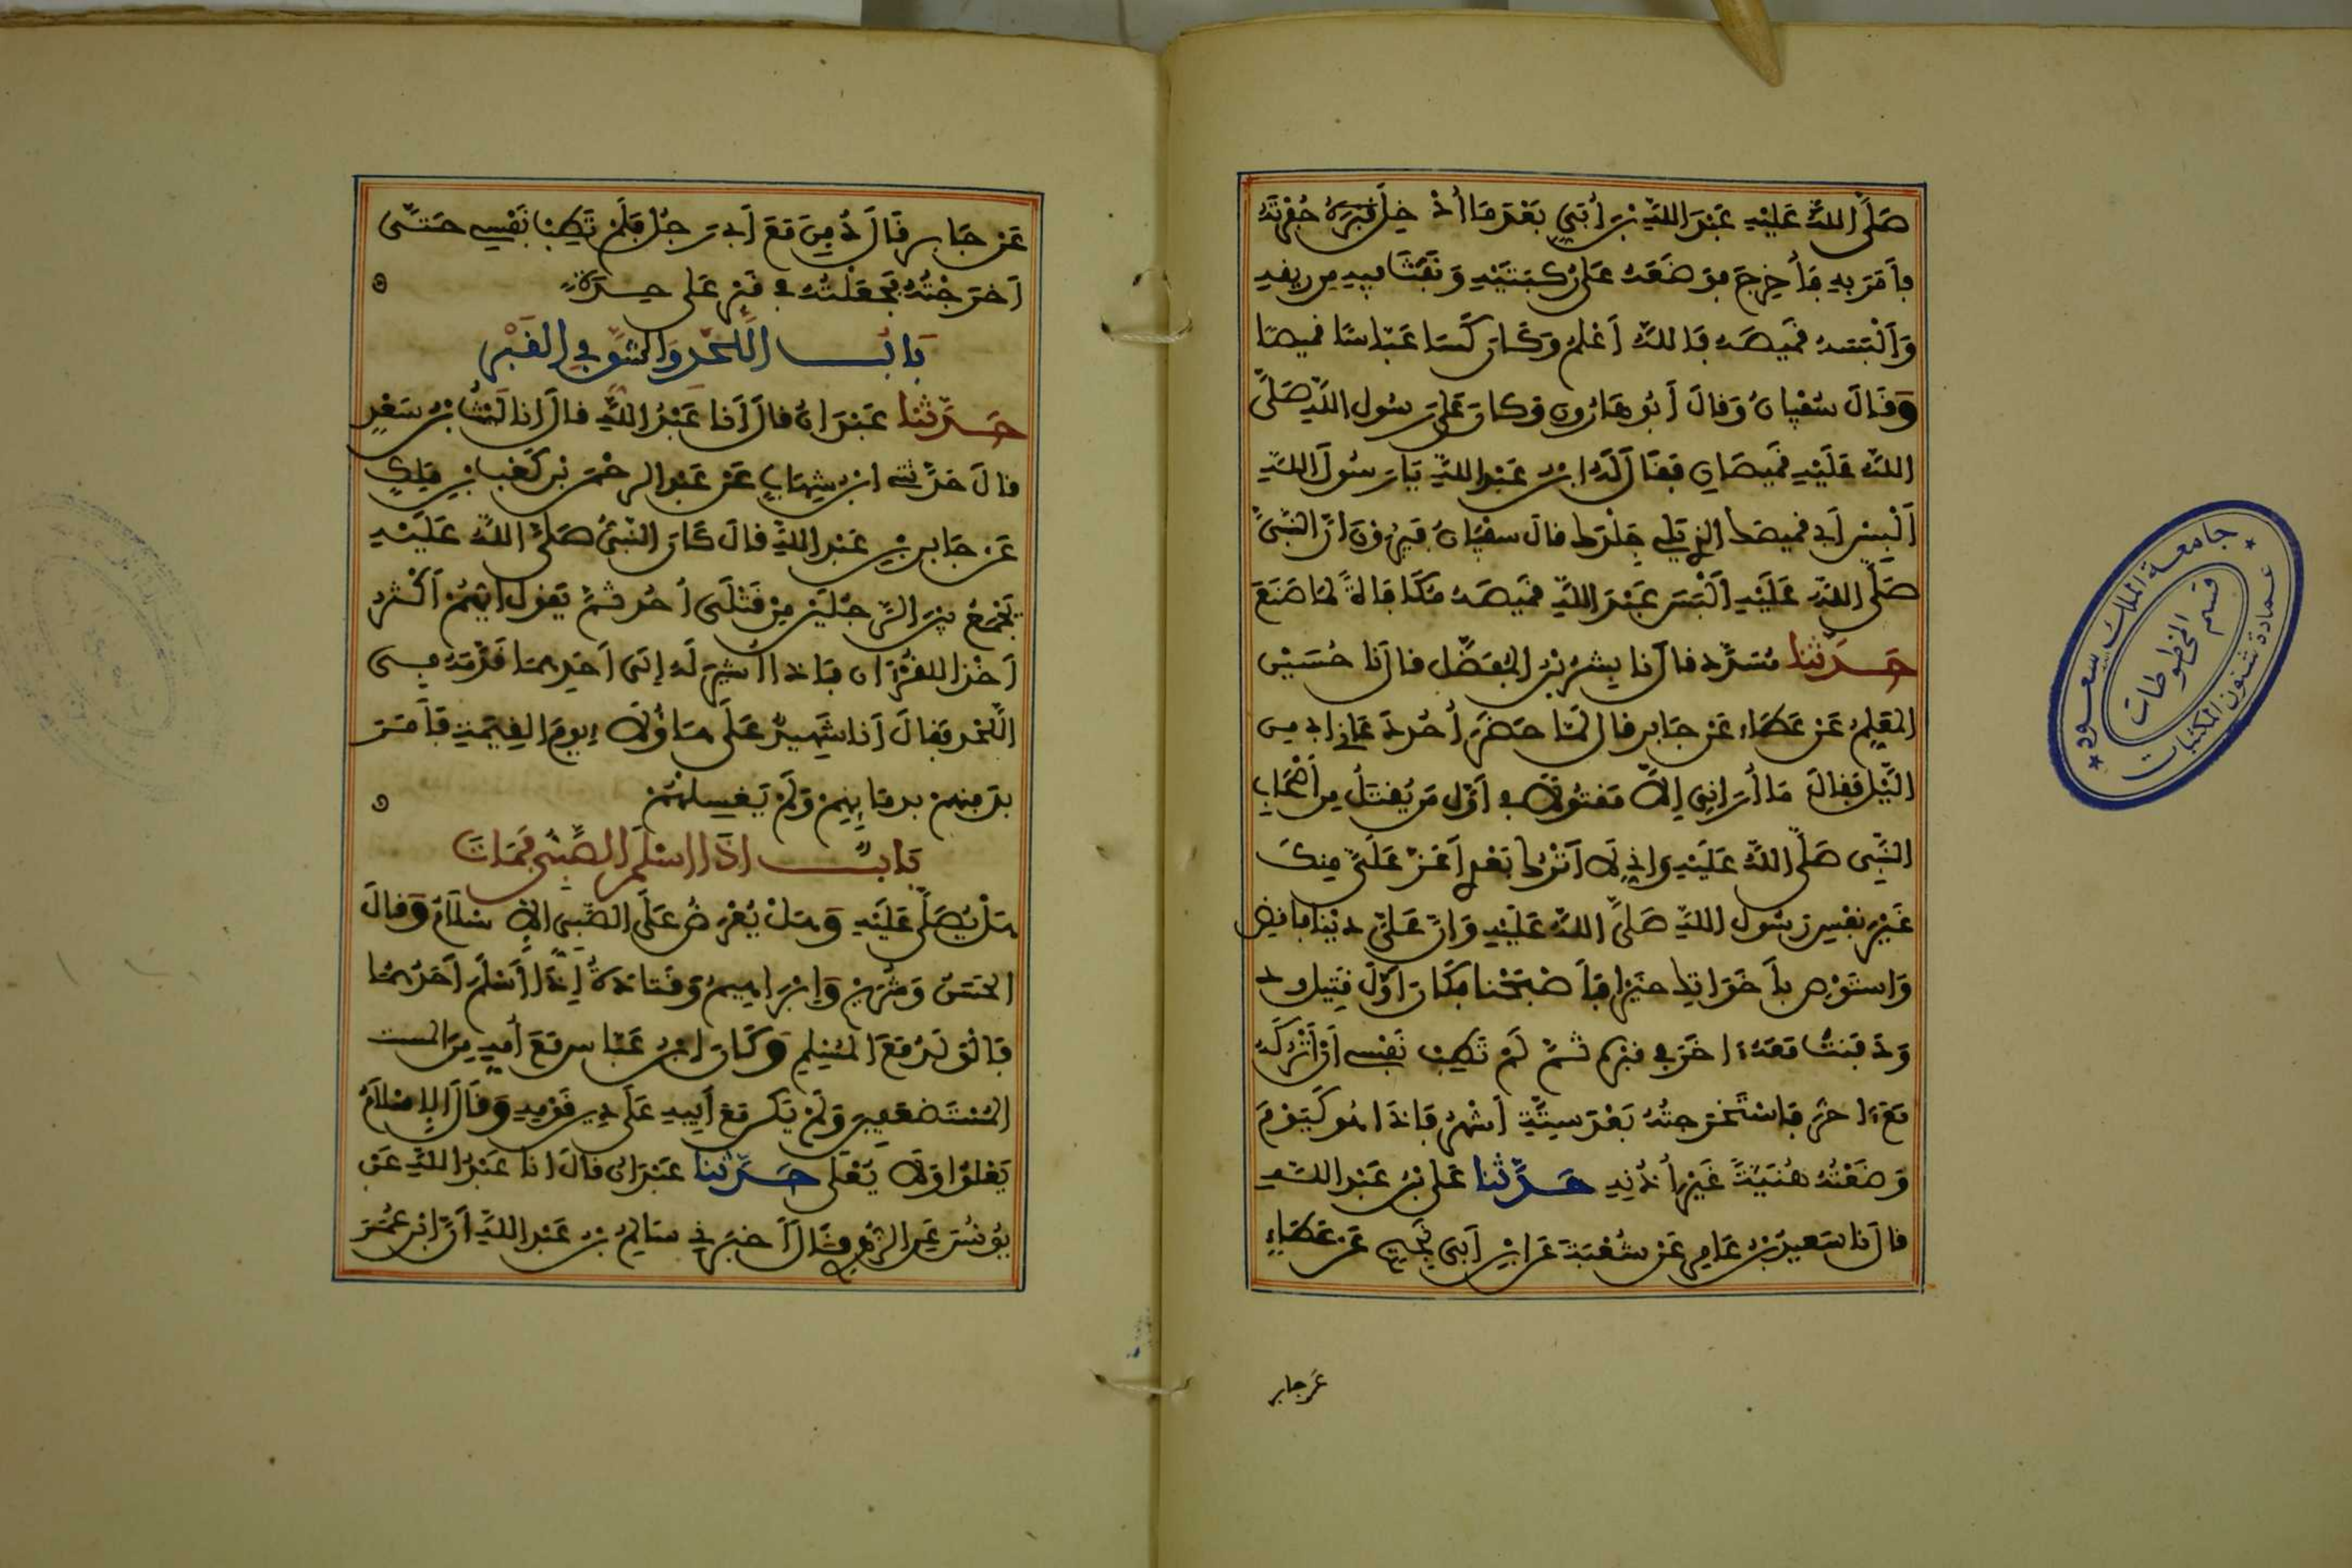 صَلَّى اللَّهُ عَلَيْهِ عَبْدَ اللَّهِ بْنَ أُبَيٍّ بَعْدَ مَا أُدْخِلَ قَبْرَهُ حُفْرَتَهُ
فَأَمَرَ بِهِ فَأُخْرِجَ فَوَضَعَهُ عَلَى رُكْبَتَيْهِ وَنَفَثَ فِيهِ مِن رِيقِهِ
وَأَلْبَسَهُ قَمِيصَهُ فَاللَّهُ أَعْلَمُ وَكَانَ كَسَا عَبَّاسًا قَمِيصًا
وَقَالَ سُفْيَانُ وَقَالَ أَبُو هَارُونَ وَكَانَ عَلَى رَسُولِ اللَّهِ صَلَّى
اللَّهُ عَلَيْهِ قَمِيصَانِ فَقَالَ لَهُ ابْنُ عَبْدِ اللَّهِ يَا رَسُولَ اللَّهِ
أَلْبِسْ أَبِي قَمِيصَكَ الذِي يَلِي جِلْدَكَ قَالَ سُفْيَانُ فَيَرَوْنَ أَنَّ النَّبِيَّ
صَلَّى اللَّهُ عَلَيْهِ أَلْبَسَ عَبْدَ اللَّهِ قَمِيصَهُ مُكَافَاةً لِمَا صَنَعَ
حَدَّثَنَا مُسَدَّد قَالَ نَا بِشْرُ بْنُ الْمُفَضَّلِ قَالَ نَا حُسَيْن
الْمُعَلِّمُ عَنْ عَطَاءٍ عَنْ جَابِرٍ قَالَ لَمَّا حَضَرَ أُحُدٌ دَعَانِي أَبِي مِن
الَّيْلِ فَقَالَ مَا أُرَانِي إِلاَّ مَقْتُولًا فِي أَوَّلِ مَن يُقْتَلُ مِن أَصْحَابِ
النَّبِي صَلَّى اللَّهُ عَلَيْهِ وَإِنِّي لَا أَتْرُكُ بَعْدِي أَعَزَّ عَلَيَّ مِنكَ
غَيْرَ نَفْسِ رَسُولِ اللَّهِ صَلَّى اللَّهُ عَلَيْهِ وَإِنَّ عَلَيَّ دَيْنًا فَاقْضِ
وَاسْتَوْصِ بِأَخَوَاتِكَ خَيْرًا فَأَصْبَحْنَا فَكَانَ أَوَّلَ قَتِيلٍ وَ
وَدَفَنتُ مَعَهُ ءَاخَرَ فِي قَبْرِهِ ثُمَّ لَمْ تَطِبْ نَفْسِي أَنْ أَتْرُكَهُ
مَعَ ءَاخَرَ فَاسْتَخْرَجْتُهُ بَعْدَ سِتَّةِ أَشْهُرٍ فَإِذَا هُوَ كَيَوْمَ
وَضَعْتُهُ هُنَيَّةً غَيْرَ أُذُنِهِ حَدَّثَنَا عَلِي بْنُ عَبْدِ اللَّهِ
قَالَ نَا سَعِيدُ بْنُ عَامِرٍ عَنْ شُعْبَةَ عَنِ ابْنِ أَبِي نَجِيحٍ عَنْ عَطَاءٍ
عَن جابر
جامعة الملك سعود
قسم المخطوطات
عمادة شئون المكتبات
عَنْ جَابِرٍ قَالَ دُفِنَ مَعَ أَبِي رَجُلٌ فَلَمْ تَطِبْ نَفْسِي حَتَّى
أَخْرَجْتُهُ فَجَعَلْتُهُ فِي قَبْرٍ عَلَى حِدَةٍ
بَابُ اللَّحْدِ وَالشَّقِّ فِي الْقَبْرِ
حَدَّثَنَا عَبْدَانُ قَالَ أَنَا عَبْدُ اللَّهِ قَالَ أَنَا لَيْثُ بْنُ سَعْدٍ
قَالَ حَدَّثَنِي ابْنُ شِهَابٍ عَنْ عَبْدِ الرحْمَن بْنِ كَعْبِ بْنِ مَلِكٍ
عَن جَابِرِ بْنِ عَبْدِ اللَّهِ قَالَ كَانَ النَّبِيُّ صَلَّى اللَّهُ عَلَيْهِ
يَجْمَعُ بَيْنَ الرَّجُلَيْنِ مِنْ قَتْلَى أُحُدٍ ثُمَّ يَقُولُ أَيُّهُمْ أَكْثَرُ
أَخْذًا لِلْقُرْءَانِ فَإِذَا أُشِيرَ لَهُ إِلَى أَحَدِهِمَا قَدَّمَهُ فِي
اللَّحْدِ فَقَالَ أَنَا شَهِيدٌ عَلَى هَؤُلَاءِ يَوْمَ الْقِيَمَةِ فَأَمَرَ
بِدَفْنِهِمْ بِدِمَايِهِمْ وَلَمْ يُغَسِّلْهُمْ
بَابٌ إِذَا أَسْلَمَ الصَّبِيُّ فَمَاتَ
هَلْ يُصَلَّى عَلَيْهِ وَهَلْ يُعْرَضُ عَلَى الصَّبِيِّ الْإِسْلَامُ وَقَالَ
الْحَسَنُ وَشُرَيْحٌ وَإِبْرَاهِيمُ وَقَتَادَةُ إِذَا أَسْلَمَ أَحَدُهُمَا
فَالْوَلَدُ مَعَ الْمُسْلِمِ وَكَانَ ابْنُ عَبَّاسٍ مَعَ أُمِّهِ مِنَ
الْمُسْتَضْعَفِينَ وَلَمْ يَكُن مَعَ أَبِيهِ عَلَى دِينِ قَوْمِهِ وَقَالَ الْإِسْلَامُ
يَعْلُو وَلَا يُعْلَى حَدَّثَنَا عَبْدَانُ قَالَ أَنَا عَبْدُ اللَّهِ عَنْ
يُونُسَ عَنِ الزُّهْرِيِّ قَالَ أَخْبَرَنِي سَالِمُ بْنُ عَبْدِ اللَّهِ أَنَّ ابْنَ عُمَرَ